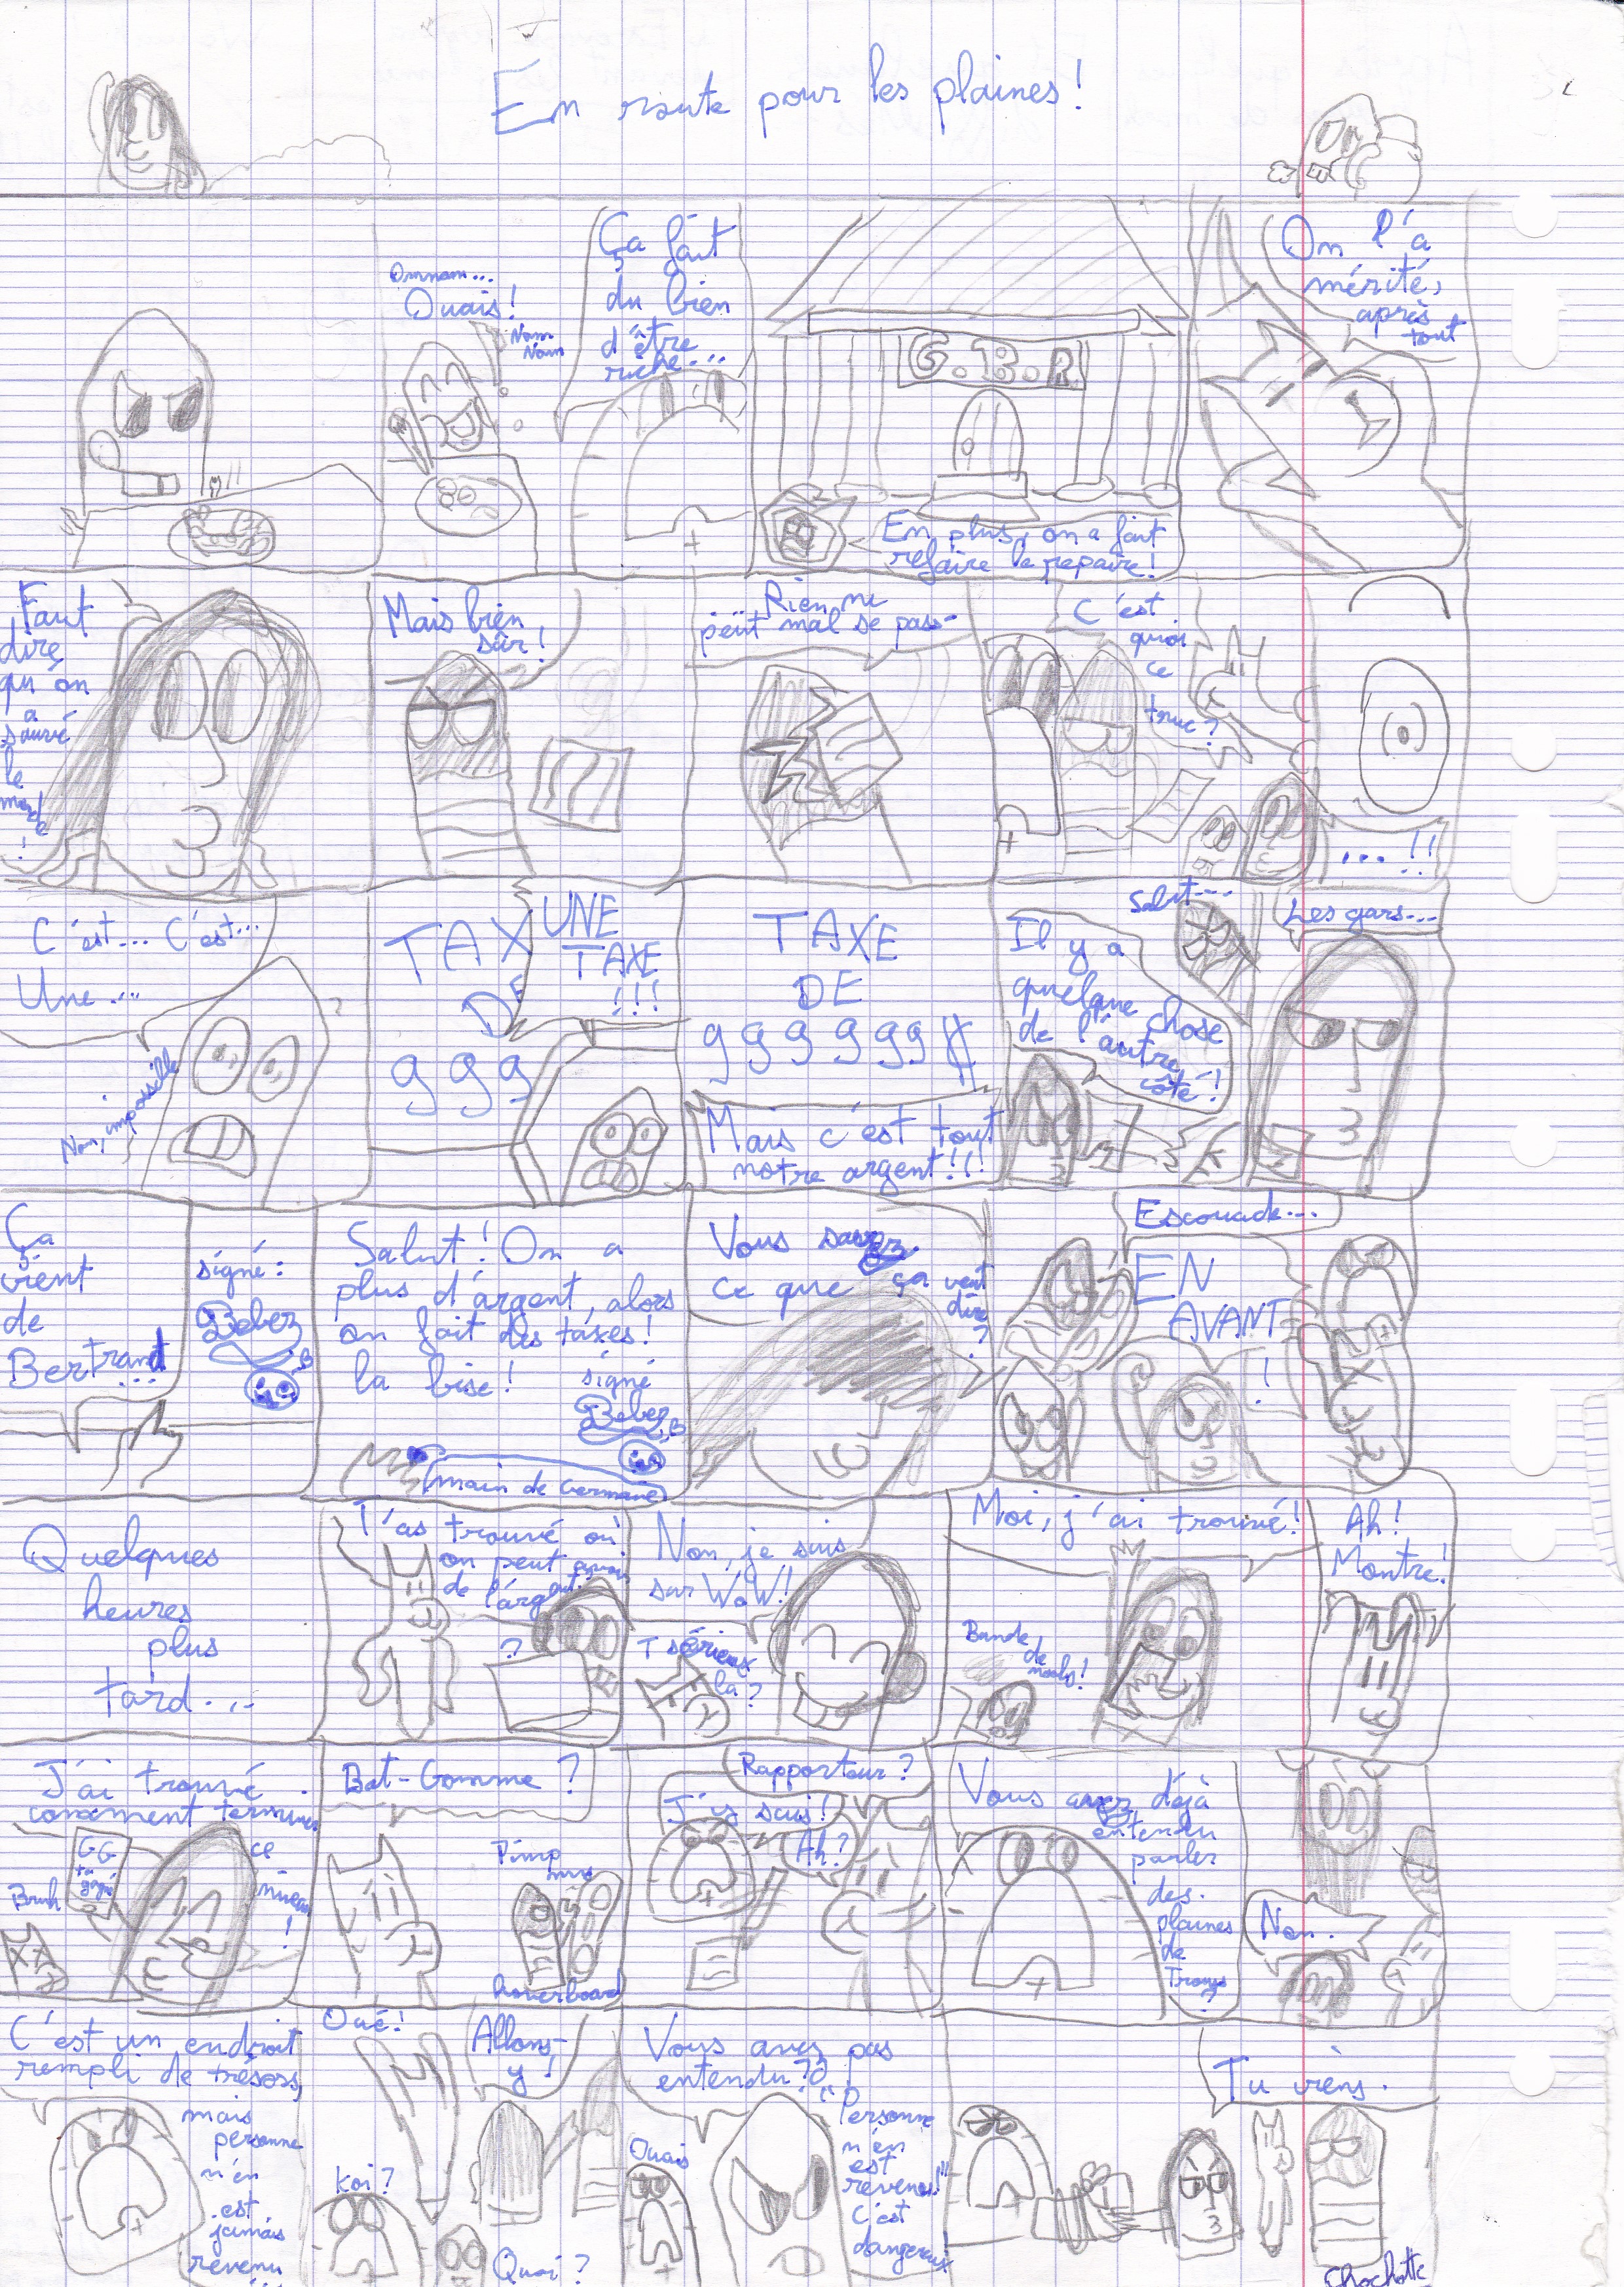 En route pour les plaines !
Omnom...
Ouais !
Nom
Nom
Ça fait
du bien
d'être
riche...
G.B.R
En plus, on a fait
refaire le repaire !
On l'a
mérité,
après
tout
Faut
dire
qu'on
a
sauvé
le
monde
!
Mais bien
sûr !
Rien ne
peut mal se pass-
C'est
quoi
ce
truc ?
... !!
C'est... C'est...
Une...
Non, impossible
TAX
DE
ggg
UNE
TAXE
!!!
TAXE
DE
ggggggg
Mais c'est tout
notre argent !!!
Salut...
Il y a
quelque chose
de l'autre
côté !
Les gars...
Ça
vient
de
Bertrand
...
signé :
Beber
Salut ! On a
plus d'argent, alors
on fait des taxes !
la bise !
signé
Beber
(main de Germaine)
Vous savez
ce que ça veut
dire
?
Escouade...
EN
AVANT
!
Quelques
heures
plus
tard...
T'as trouvé où
on peut avoir
de l'argent
?
Non, je suis
sur WoW !
T sérieux
la ?
Moi, j'ai trouvé !
Bande
de noobs !
Ah !
Montre !
J'ai trouvé
comment terminer
ce
niveau
!
GG
tu as
gagné
Bruh
Bat-Gomme ?
Pimp
mon
hoverboard
Rapporteur ?
J'y suis !
Ah ?
Vous avez déjà
entendu
parler
des
plaines
de
?
Non.
C'est un endroit
rempli de trésors,
mais
personne
n'en
est
jamais
revenu
...
Oué !
Allons-
y !
Koi ?
Quoi ?
Vous avez pas
entendu ??
Ouais
"Personne
n'en
est
revenu !"
C'est
dangereux
Tu viens.
Chochotte